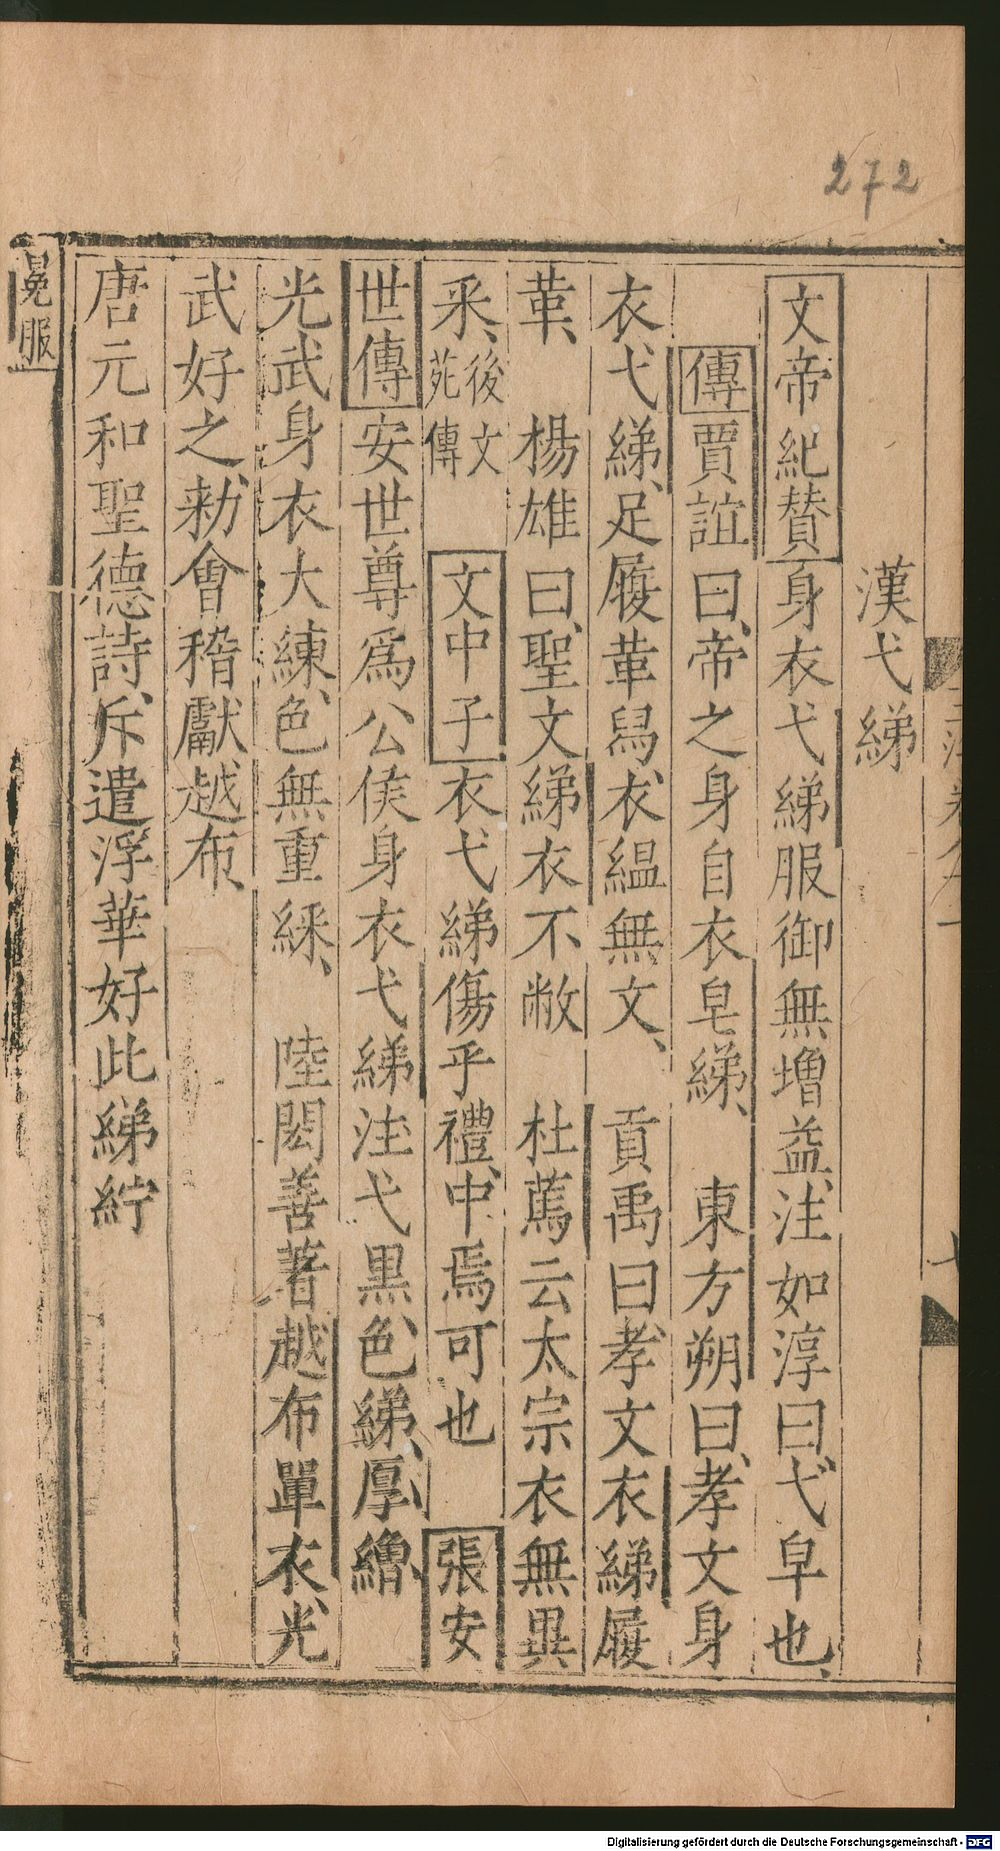 272
漢弋綈
文帝紀賛身衣弋綈服御無増益注如淳曰弋皁也、
傳賈誼曰、帝之身自衣皂綈、　東方朔曰、孝文身
衣弋綈、足履革舃、衣縕無文、　貢禹曰、孝文衣綈履
革、　楊雄曰、聖文綈衣不敝　杜薦云太宗衣無異
采、後文苑傳　文中子衣弋綈傷乎禮、中焉可也　張安
世傳安世尊為公侯身衣弋綈注弋黒色綈、厚繒
光武身衣大練、色無重綵、　陸閎善著越布單衣、光
武好之、勑會稽獻越布、
唐元和聖德詩、斥遣浮華好此綈紵
冕服
Digitalisierung gefördert durch die Deutsche Forschungsgemeinschaft - DFG